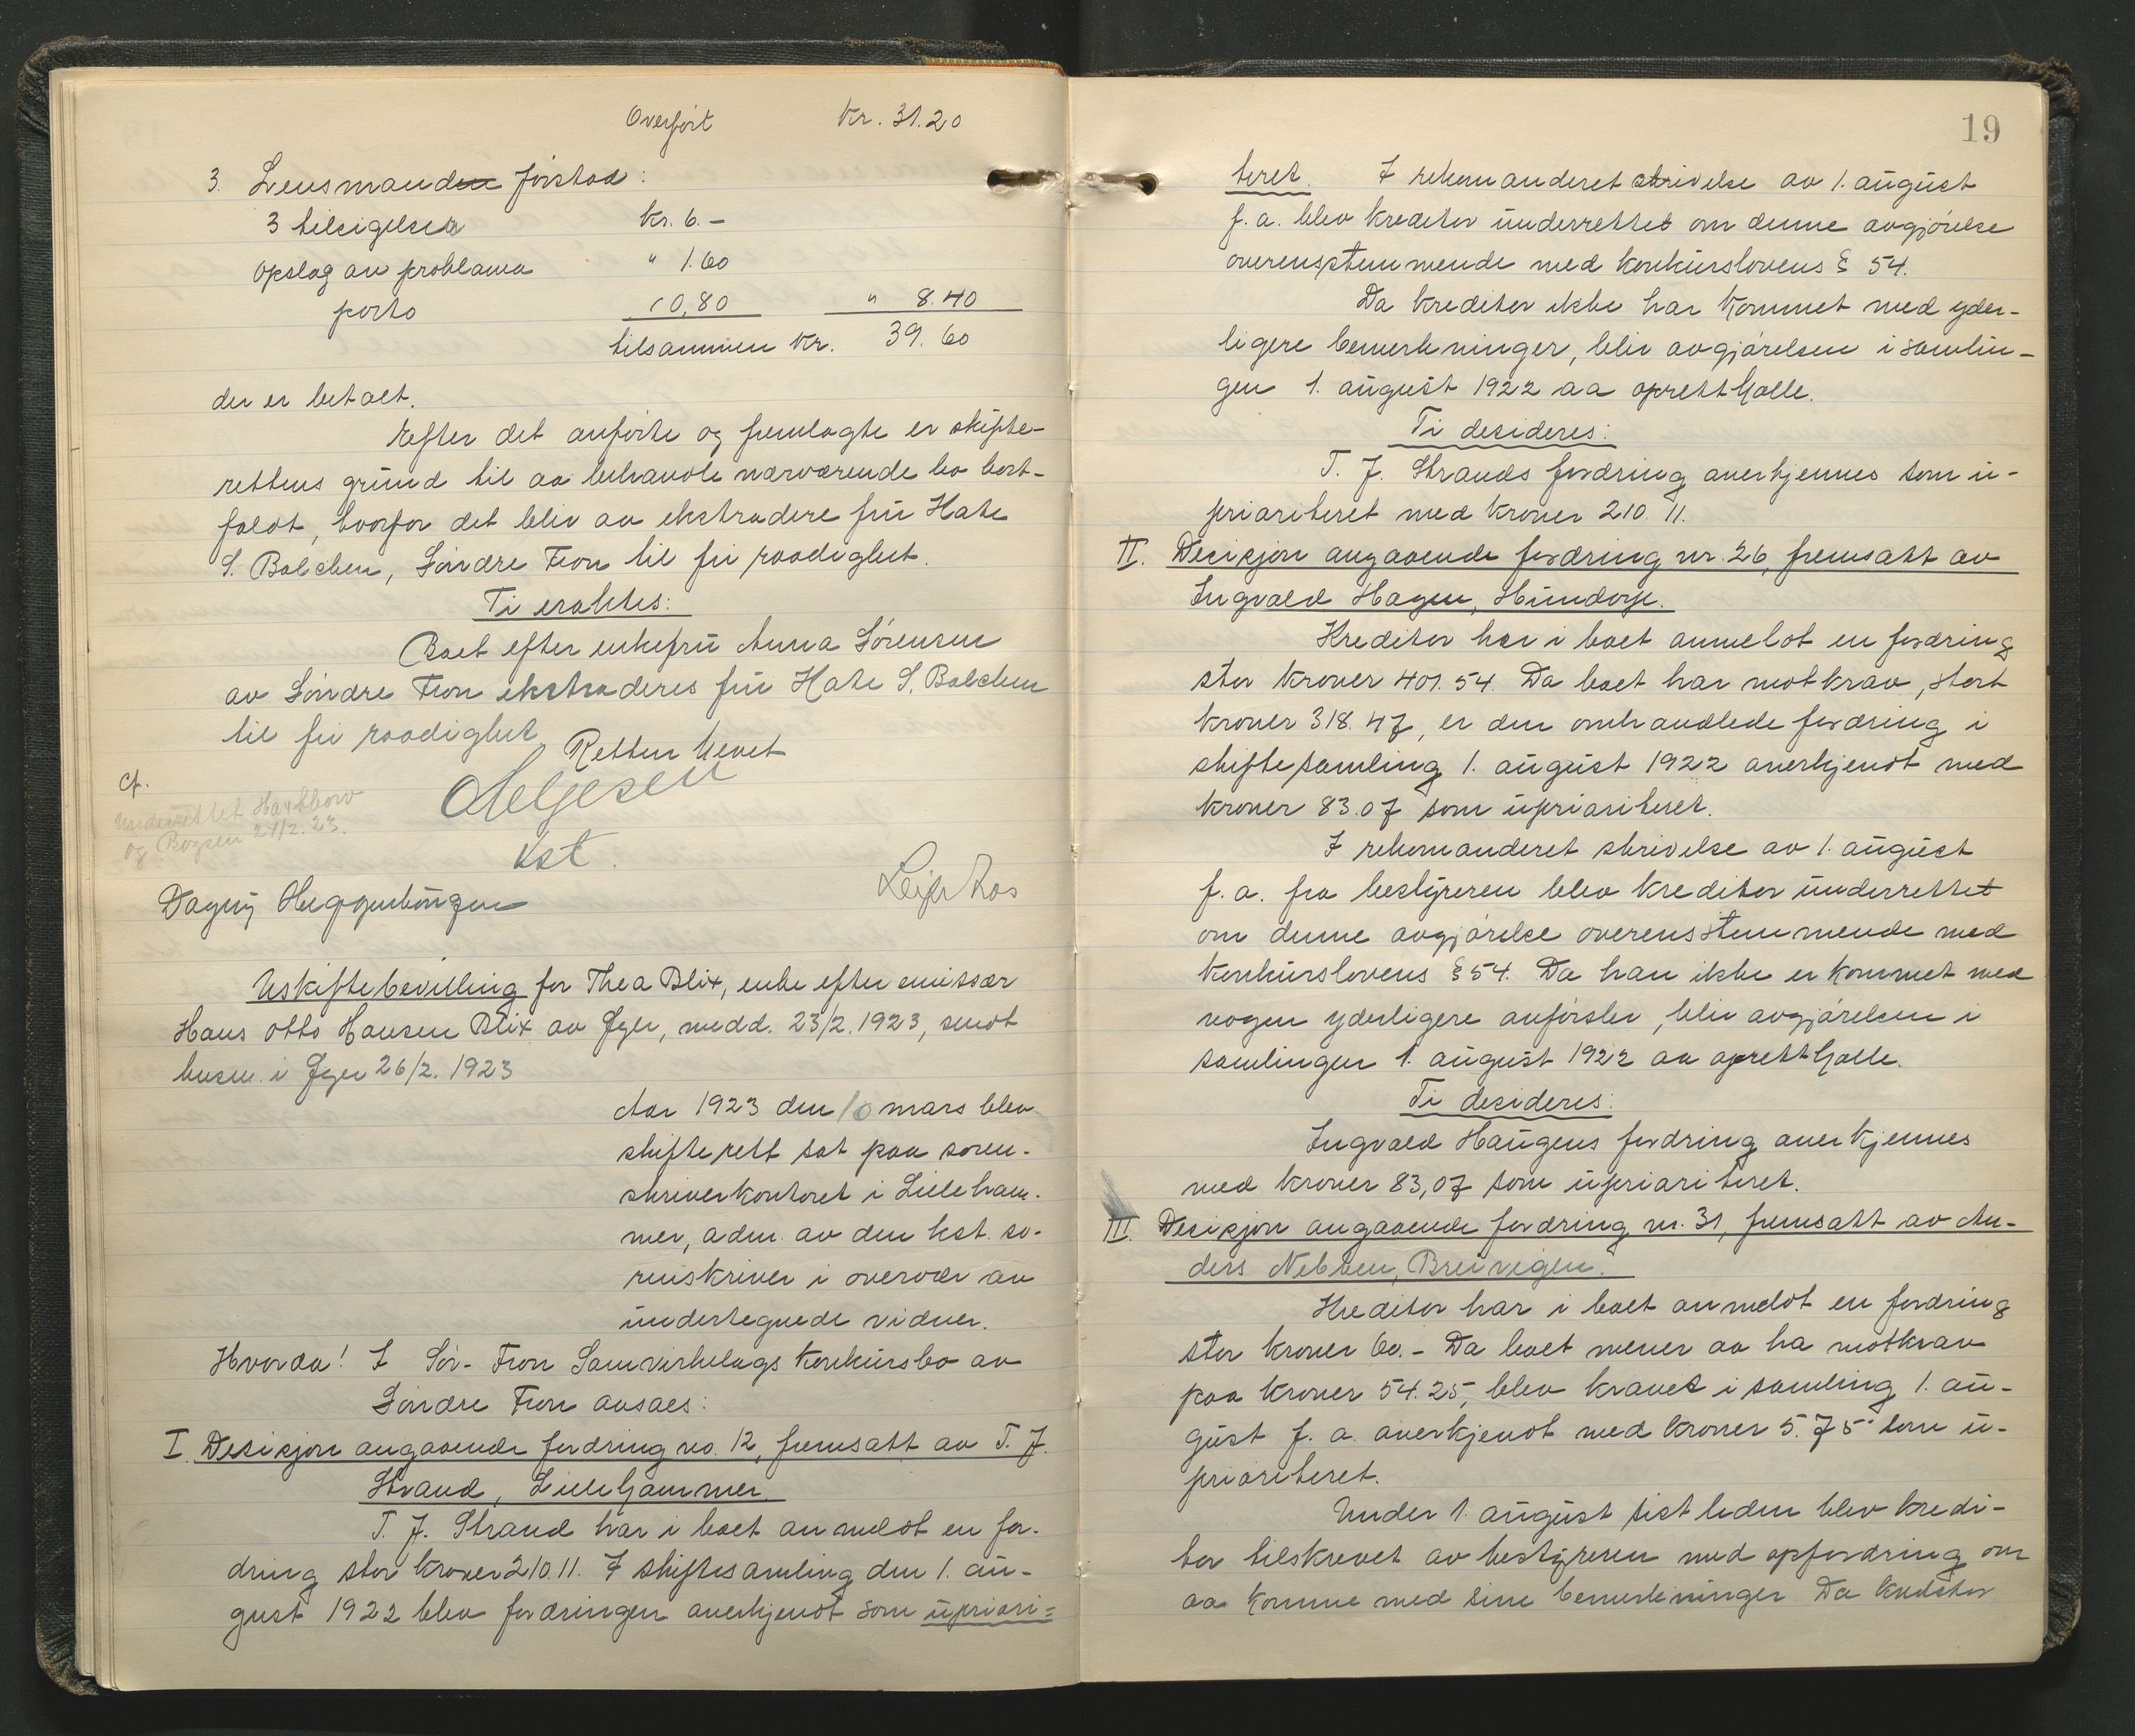 Overført Kr. 31.20
3. Lensmanden forstad:
3 tilsigelser Kr. 6.–
Opslag av proklama " 1.60
porto " 0,80 " 8.40
tilsammen Kr. 39.60
der er betalt.
Efter det anførte og fremlagte er skifte-
rettens grund til aa behandle nærværende bo bort-
faldt, hvorfor det blir aa ekstradere fru Kate
S. Balchen, Søndre Fron til fri raadighet.
Ti eraktes:
Boet efter enkefru Anna Sørensen
av Søndre Fron ekstraderes fru Kate S. Balchen
til fri raadighet.
Retten hevet
Helgesen
kst.
Cf.
Underrettet
og 24/2. 23.
Dagny Huggenbergen
Leif Aas
Uskiftebevilling for Thea Blix, enke efter emissær
Hans Otto Hansen Blix av Øyer, medd. 23/2. 1923, sendt
lensm. i Øyer 26/2. 1923
Aar 1923 den 10 mars blev
skifterett sat paa soren-
skriverkontoret i Lilleham-
mer, adm. av den kst. so-
renskriver i overvær av
undertegnede vidner.
Hvorda! I Sør-Fron Samvirkelags konkursbo av
Søndre Fron avsaes:
I. Desisjon angaaende fordring no. 12, fremsatt av T. J.
Strand, Lillehammer.
T. J. Strand har i boet anmeldt en for-
dring stor kroner 210.11. I skiftesamling den 1. au-
gust 1922 blev fordringen anerkjendt som upriori=
19
teret. I rekomanderet skrivelse av 1. august
f. a. blev kreditor underrettet om denne avgjørelse
overensstemmende med konkurslovens § 54.
Da kreditor ikke har kommet med yder-
ligere bemerkninger, blir avgjørelsen i samlin-
gen 1. august 1922 aa opretthalle.
Ti desideres:
T. J. Strands fordring anerkjennes som u-
prioriteret med kroner 210.11.
II. Desisjon angaaende fordring nr. 26, fremsatt av
Ingvald Hagen, Hundorp.
Kreditor har i boet anmeldt en fordring
stor kroner 401.54. Da boet har motkrav, stort
kroner 318.47, er den omhandlede fordring i
skiftesamling 1. august 1922 anerkjendt med
kroner 83.07 som uprioriteret.
I rekomanderet skrivelse av 1. august
f. a. fra bestyreren blev kreditor underrettet
om denne avgjørelse overensstemmende med
konkurslovens § 54. Da han ikke er kommet med
nogen yderligere anførsler, blir avgjørelsen i
samlingen 1. august 1922 aa opretthalle.
Ti desideres:
Ingvald Haugens fordring anerkjennes
med kroner 83,07 som uprioriteret.
III. Desisjon angaaende fordring nr. 31, fremsatt av An-
ders Nebben, Breivegen.
Kreditor har i boet anmeldt en fordring
stor kroner 60.– Da boet mener aa ha motkrav
paa kroner 54.25, blev kravet i samling 1. au-
gust f. a. anerkjendt med kroner 5.75 som u-
prioriteret.
Under 1. august sistleden blev kredi-
tor tilskrevet av bestyreren med opfordring om
aa komme med sine bemerkninger Da kreditor